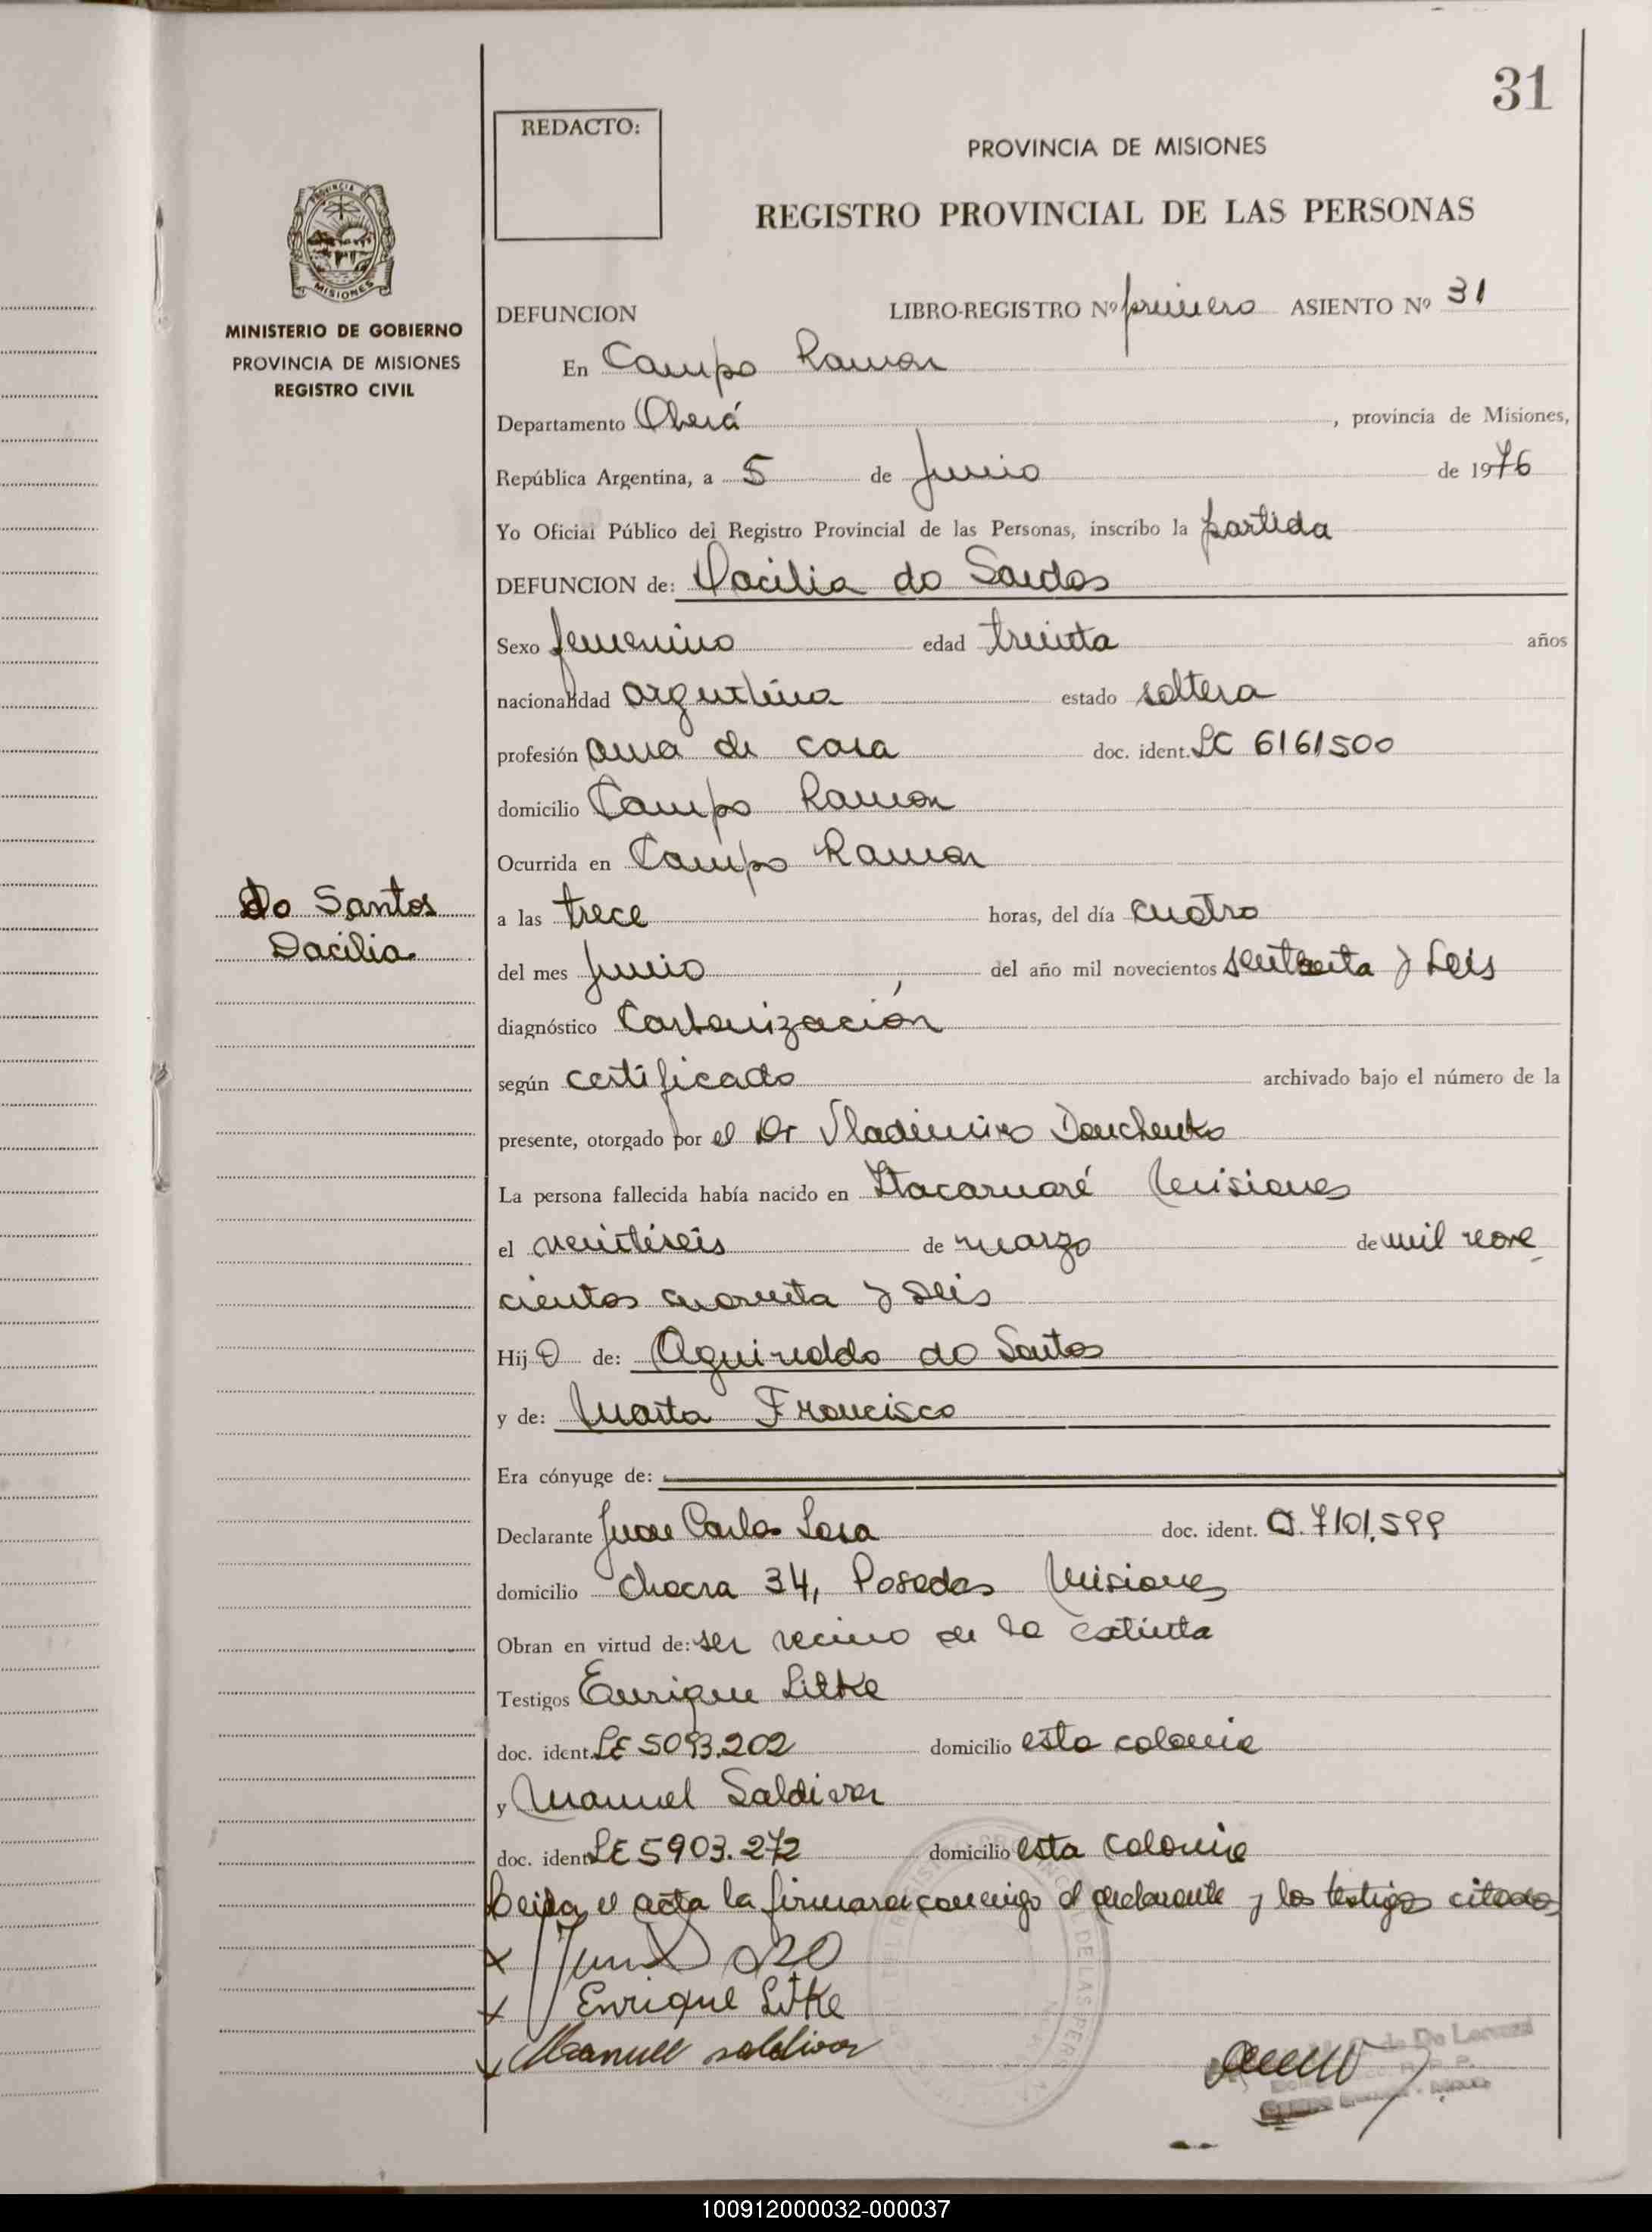 31
REDACTO:
PROVINCIA DE MISIONES
REGISTRO PROVINCIAL DE LAS PERSONAS
PROVINCIA DE
MISIONES
MINISTERIO DE GOBIERNO
PROVINCIA DE MISIONES
REGISTRO CIVIL
DEFUNCION LIBRO-REGISTRO Nº primero ASIENTO Nº 31
En Campo Ramon
Departamento Oberá, provincia de Misiones,
República Argentina, a 5 de Junio de 1976
Yo Oficial Público del Registro Provincial de las Personas, inscribo la partida
DEFUNCION de: Dacilia do Santos
Sexo femenino edad treinta años
nacionalidad argentina estado soltera
profesión ama de casa doc. ident. LC 6161500
domicilio Campo Ramon
Ocurrida en Campo Ramon
Do Santos
Dacilia
a las trece horas, del día cuatro
del mes Junio del año mil novecientos setenta y seis
diagnóstico Carbonización
según certificado archivado bajo el número de la
presente, otorgado por el Dr Vladimiro Donchenko
La persona fallecida había nacido en Itacaruaré Misiones
el veintiseis de marzo de mil nove
cientos cuarenta y seis
Hij a de: Aguinaldo do Santos
y de: Marta Francisco
Era cónyuge de:
Declarante Juan Carlos Sosa doc. ident. CI. 7101.599
domicilio Chacra 34, Posadas Misiones
Obran en virtud de: ser vecino de la extinta
Testigos Enrique Litke
doc. ident. LE 5093.202 domicilio esta colonia
y Manuel Saldivar
doc. ident LE 5903.272 domicilio esta colonia
Leida el acta la firman conmigo el declarante y los testigos citados
Enrique Litke
Manuel saldivar
100912000032-000037